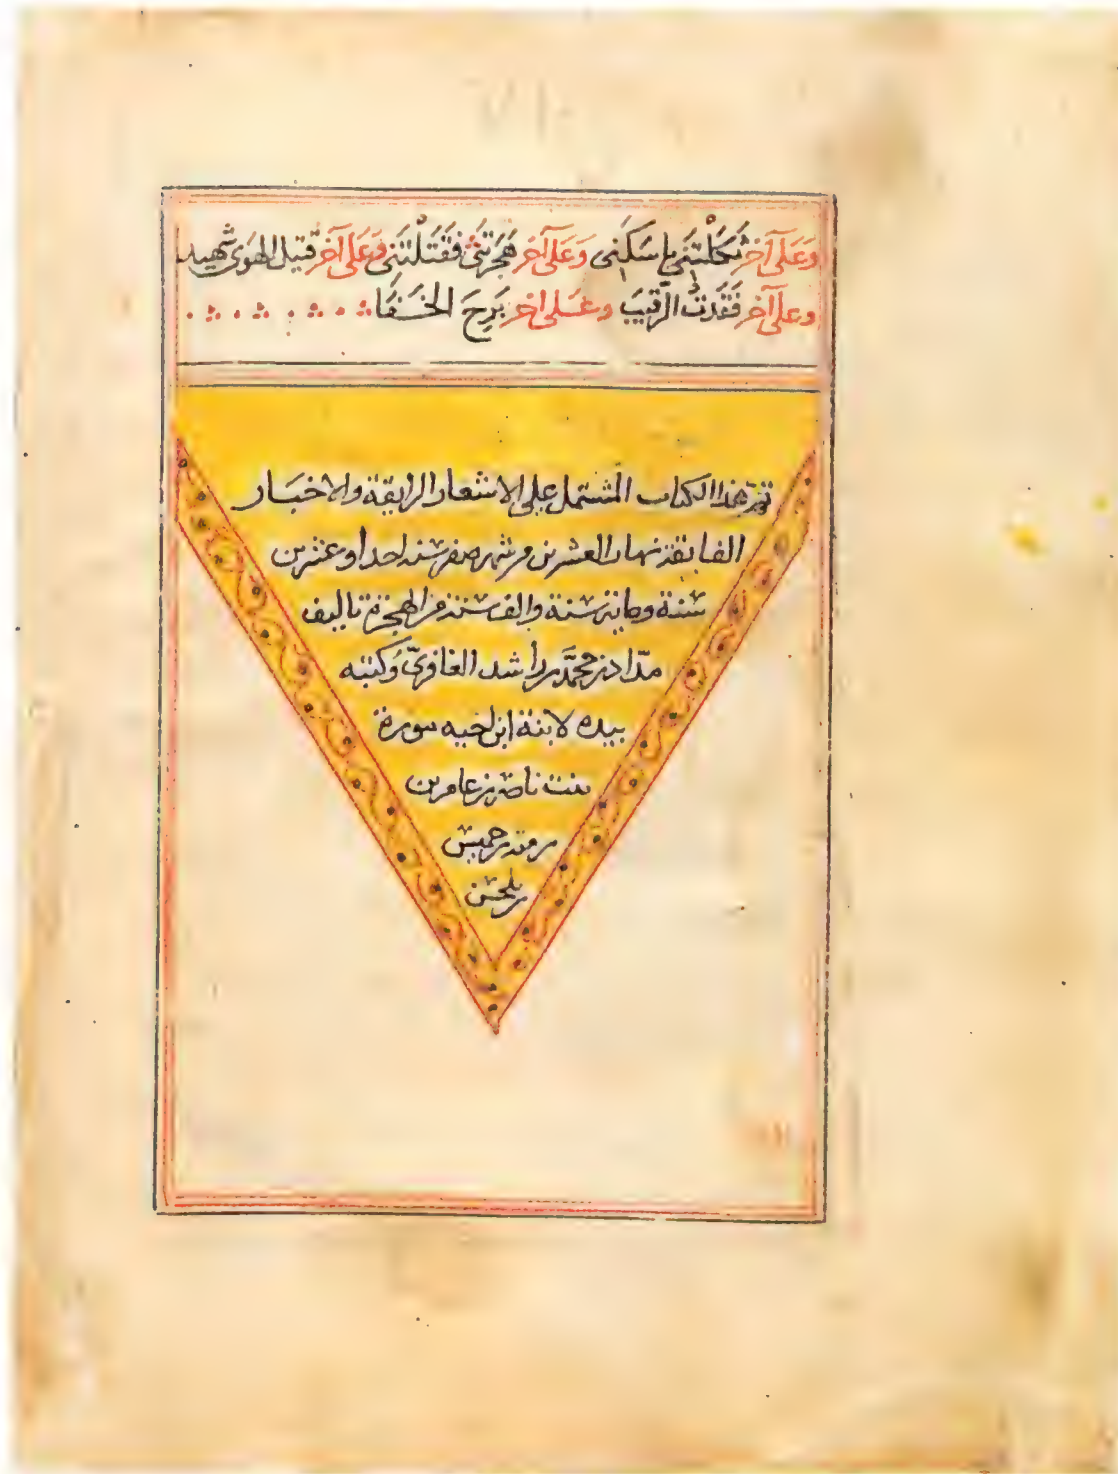 وَعَلَى آخر ثَكَلْتَنِي يا سَكَنِي وَعَلَى آخر هَجَرْتَنِي فَقَتَلْتَنِي وَعَلَى آخر قتيل الهَوَى شهيد
وعلى آخر فَقَدتُ الرَّقِيبَ وعَلى اخر بَرِحَ الخَفَا
تم هذا الكتاب المشتمل على الاشعار الرايقة والاخبار
الفايقة نهار العشرين من شهر صفر سنة احدا وعشرين
سنة ومائة سنة والف سنة من الهجرة تاليف
مدّاد بن محمَّد بن راشد الغافريّ وكتبه
بيده لابنة ابن اخيه سورة
بنت ناصر بن عامر بن
بن خميس
بلحسن